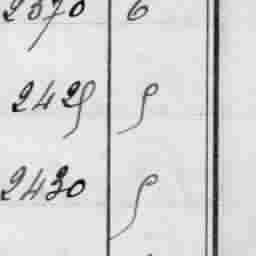 2370 6
2429 9
2430 9